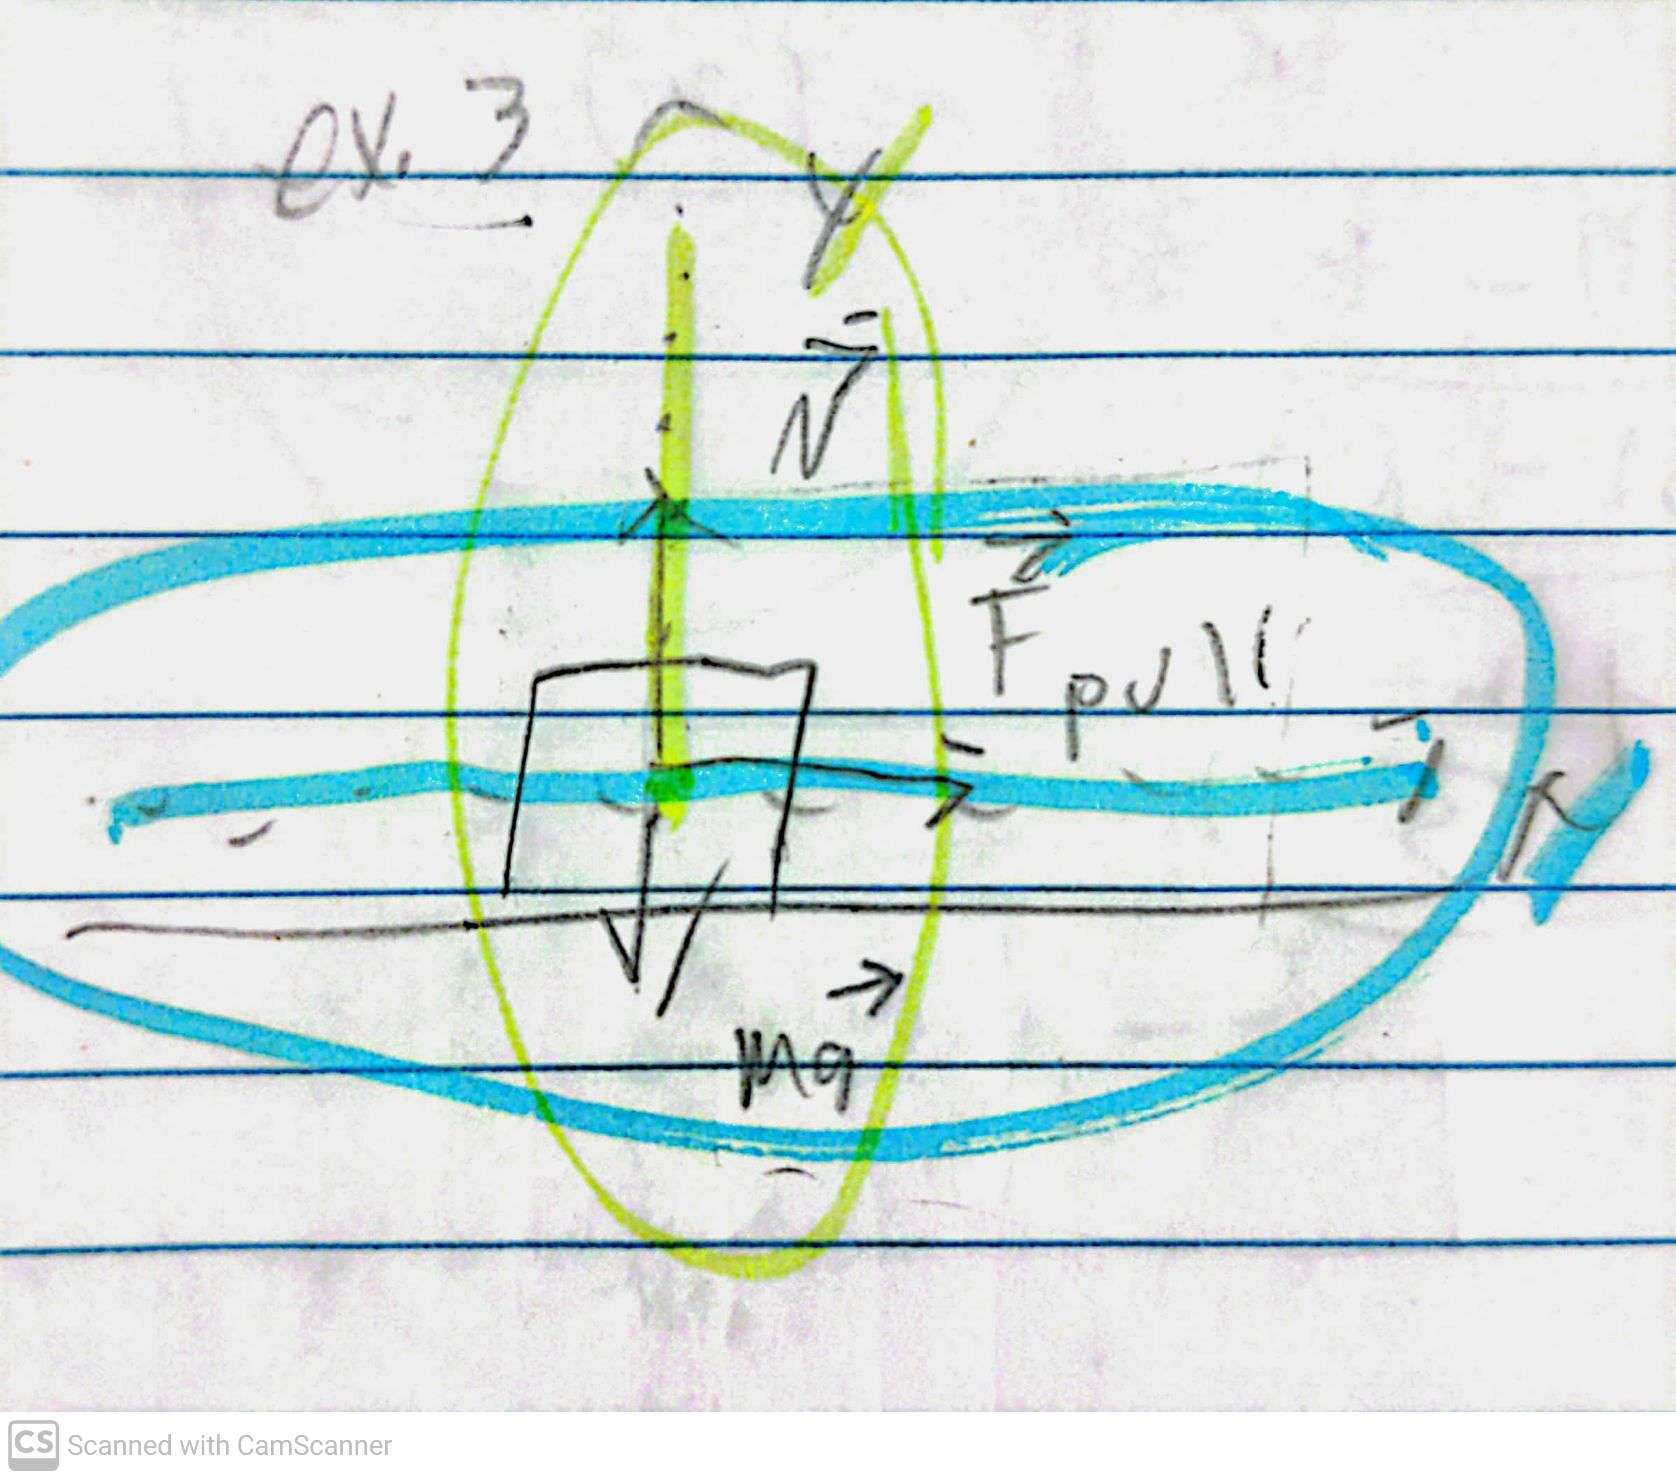 ex. 3
y
N
F pull
x
mg
CS Scanned with CamScanner